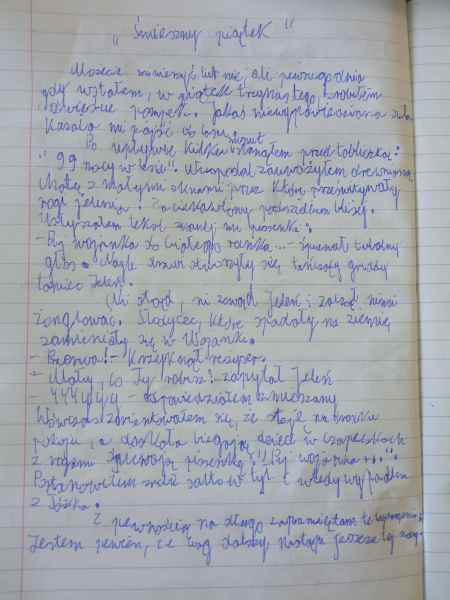 „Śmieszny piątek"
Możecie mi wierzyć lub nie, ale pewnego dnia
gdy wstałem, w piątek trzynastego, zrobiłem
dziwięć pompek. Jakaś niewypowiedziana siła
kazała mi pójść do lasu.
Po upływie kilku minut stanąłem przed tabliczką:
"99 nocy w lesie". Nieopodal zauważyłem drewnianą
chatę z małymi oknami przez które prześwitywały
rogi jelenia. Zaciekawiony podszedłem bliżej.
Usłyszałem tekst znanej mi piosenki:
- Pij Wojanka do białego ranka... - śpiewał tubalny
głos. Nagle drzwi otworzyły się, tańczący gruby
taniec Jeleń.
Ni stąd, ni zowąd Jeleń zaczął nimi
żonglować. Słodycze, które spadały na ziemię
zamieniały się w Wojanki.
- Brawa! - Krzyknął reżyser.
- Mały, co Ty robisz? zapytał Jeleń
- YYYyyyy - odpowiedziałem zmieszany
Wówczas zorientowałem się, że stoję na środku
pokoju, a dookoła biegają dzieci w czapeczkach
z rogami śpiewają piosenkę: "Pij wojanka...".
Postanowiłem zrobić salto w tył i wtedy wypadłem
z łóżka.
Z pewnością na długo zapamiętam te
Jestem pewien, że ciąg dalszy nastąpi jeszcze tej nocy.